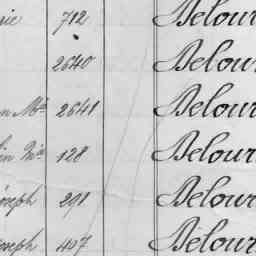 rie 712 Delour
2640 Delour
n Mie 2641 Delour
lin Mie 128 Delour
oseph 291 Delour
oseph 407 Delour